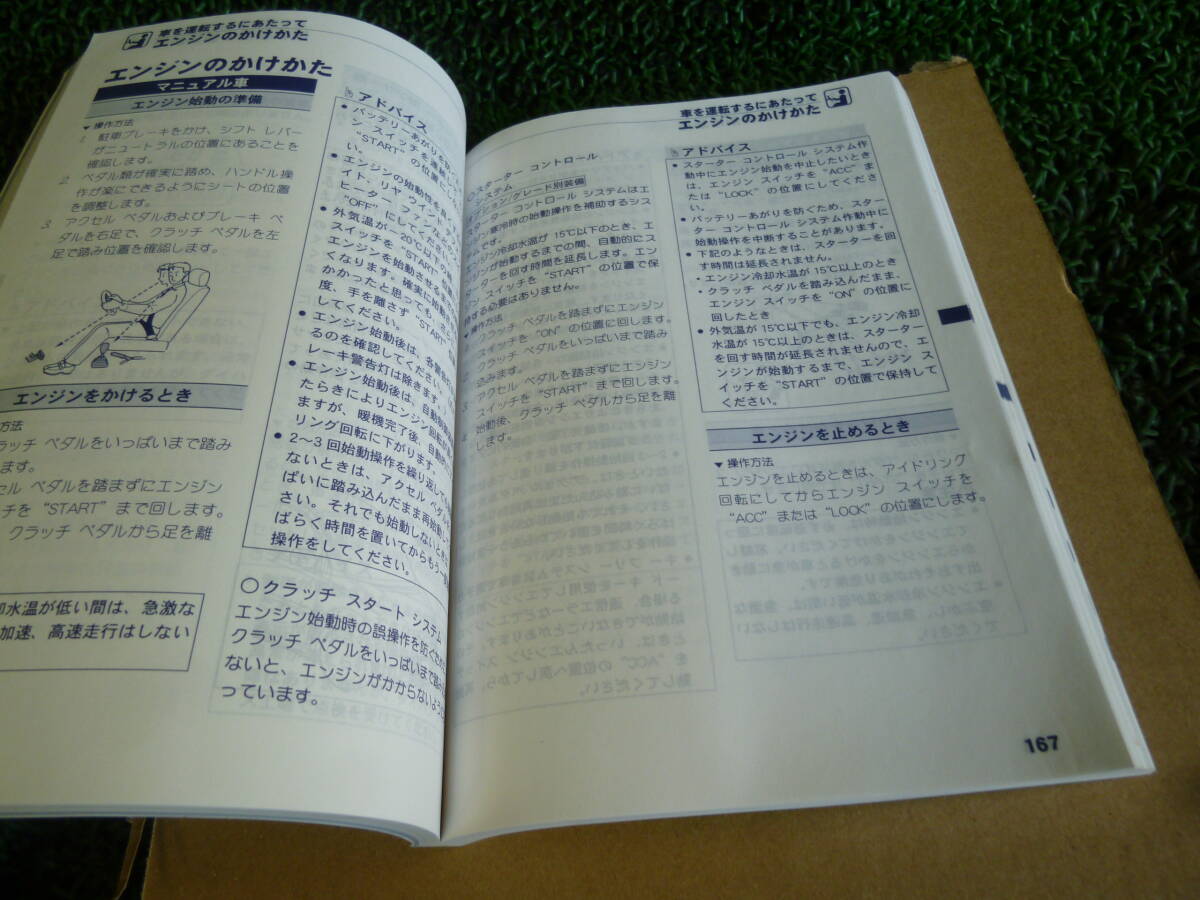 車を運転するにあたって
エンジンのかけかた
エンジンのかけかた
マニュアル車
エンジン始動の準備
▼操作方法
1. 駐車ブレーキをかけ、シフト レバー
がニュートラルの位置にあることを
確認します。
2. ペダル類が確実に踏め、ハンドル操
作が楽にできるようにシートの位置
を調整します。
3. アクセル ペダルおよびブレーキ ペ
ダルを右足で、クラッチ ペダルを左
足で踏み位置を確認します。
エンジンをかけるとき
方法
ラッチ ペダルをいっぱいまで踏み
ます。
セル ペダルを踏まずにエンジン
チを “START” まで回します。
クラッチ ペダルから足を離
水温が低い間は、急激な
加速、高速走行はしない
アドバイス
● バッテリーあがりを防
ン スイッチを連続
“START” の位置に
い。
● エンジンの始動性を良
イト、リヤ ウインド
ヒーター ファンなど
“OFF” にしてくださ
● 外気温が−20℃以下の
スイッチを “START”
エンジンを始動させる
くなります。確実に始動
かかったと思っても
度、手を離さず “START”
してください。
● エンジン始動後は、各警告灯
るのを確認してください。
レーキ警告灯は除きます
● エンジン始動後は、自動
たらきによりエンジン回転
ますが、暖機完了後、自動
リング回転に下がります。
● 2〜3 回始動操作を繰り返して
ないときは、アクセル ペダルを
ぱいに踏み込んだまま再始動し
さい。それでも始動しないとき
ばらく時間を置いてからもう一
操作をしてください。
○ クラッチ スタート システム
エンジン始動時の誤操作を防ぐため
クラッチ ペダルをいっぱいまで踏
ないと、エンジンがかからないように
っています。
車を運転するにあたって
エンジンのかけかた
○スターター コントロール
システム
オプション/グレード別装備
スターター コントロール システムはエ
ンジン寒冷時の始動操作を補助するシス
ムです。
ンジン冷却水温が 15℃以下のとき、エ
ジンが始動するまでの間、自動的にス
ーターを回す時間を延長します。エン
ン スイッチを “START” の位置で保
する必要はありません。
操作方法
クラッチ ペダルを踏まずにエンジン
スイッチを “ON” の位置に回します。
クラッチ ペダルをいっぱいまで踏み
込みます。
アクセル ペダルを踏まずにエンジン
スイッチを “START” まで回します。
始動後、クラッチ ペダルから足を離
します。
アドバイス
● スターター コントロール システム作
動中にエンジン始動を中止したいとき
は、エンジン スイッチを “ACC” ま
たは “LOCK” の位置にしてくださ
い。
● バッテリーあがりを防ぐため、スター
ター コントロール システム作動中に
始動操作を中断することがあります。
● 下記のようなときは、スターターを回
す時間は延長されません。
・エンジン冷却水温が 15℃以上のとき
・クラッチ ペダルを踏み込んだまま、
エンジン スイッチを “ON” の位置に
回したとき
● 外気温が 15℃以下でも、エンジン冷却
水温が 15℃以上のときは、スターター
を回す時間が延長されませんので、エ
ンジンが始動するまで、エンジン ス
イッチを “START” の位置で保持して
ください。
エンジンを止めるとき
▼操作方法
エンジンを止めるときは、アイドリング
回転にしてからエンジン スイッチを
“ACC” または “LOCK” の位置にします。
167